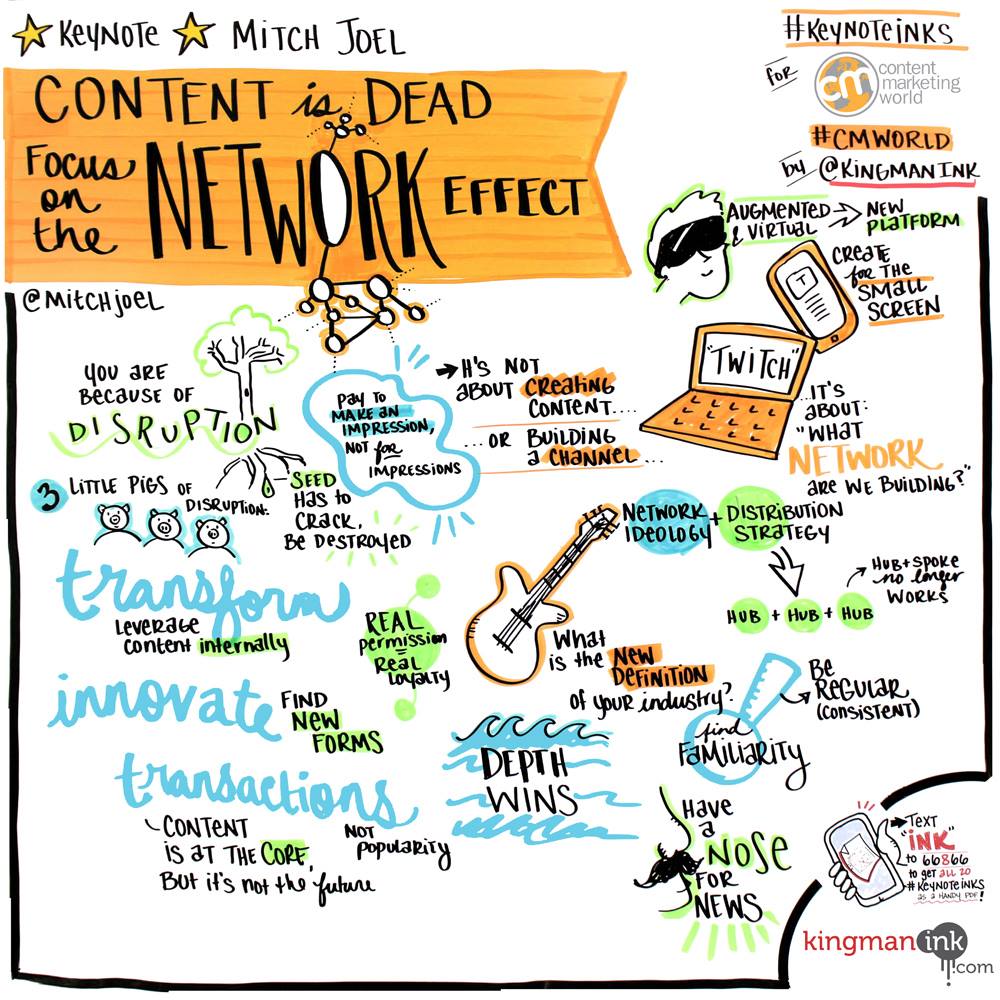 KEYNOTE MITCH JOEL
CONTENT is DEAD
FOCUS
on
the
NETWORK EFFECT
@mitchjoel
#KEYNOTEINKS
for
cm content
marketing
world
#CMWORLD
by @KINGMANINK
AUGMENTED
& VIRTUAL
NEW
PLATFORM
CREATE
for THE
SMALL
SCREEN
T
"TWITCH"
YOU ARE
BECAUSE OF
DISRUPTION
PAY TO
MAKE AN
IMPRESSION,
NOT for
IMPRESSIONS
It's NOT
ABOUT CREATING
CONTENT....
... OR BUILDING
a CHANNEL ...
...IT'S
ABOUT:
"WHAT
NETWORK
ARE WE BUILDING?"
3 LITTLE PIGS OF
DISRUPTION:
SEED
HAS to
CRACK,
BE DESTROYED
NETWORK
IDEOLOGY
+
DISTRIBUTION
STRATEGY
HUB + SPOKE
no longer
WORKS
HUB + HUB + HUB
transform
LEVERAGE
content internally
REAL
permission
=
Real
Loyalty
What
is the NEW
DEFINITION
of your industry?
BE
REGULAR
(CONSISTENT)
find
FAMILIARITY
innovate
FIND
NEW
FORMS
DEPTH
WINS
transactions
CONTENT
IS AT THE CORE,
But it's not the future
NOT
popularity
HAVE
a
NOSE
FOR
NEWS
TEXT
"INK"
to 66866
to get all 20
#KEYNOTEINKS
AS A HANDY PDF!
kingman ink
.com